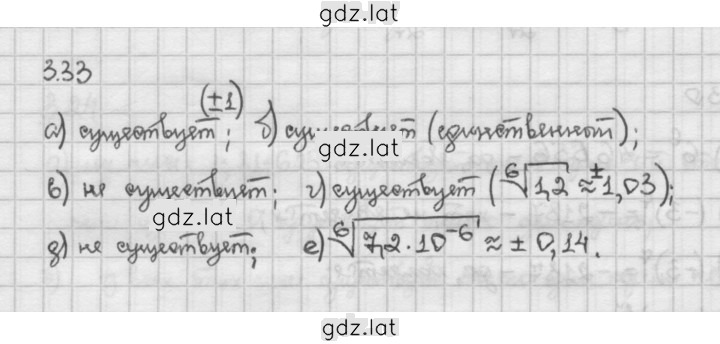 gdz.lat
3.33
(±1)
а) существует; б) существует (единственный);
gdz.lat
в) не существует; г) существует (⁶√1,2 ≈ ±1,03);
gdz.lat
д) не существует; е) ⁶√7,2·10⁻⁶ ≈ ± 0,14.
gdz.lat